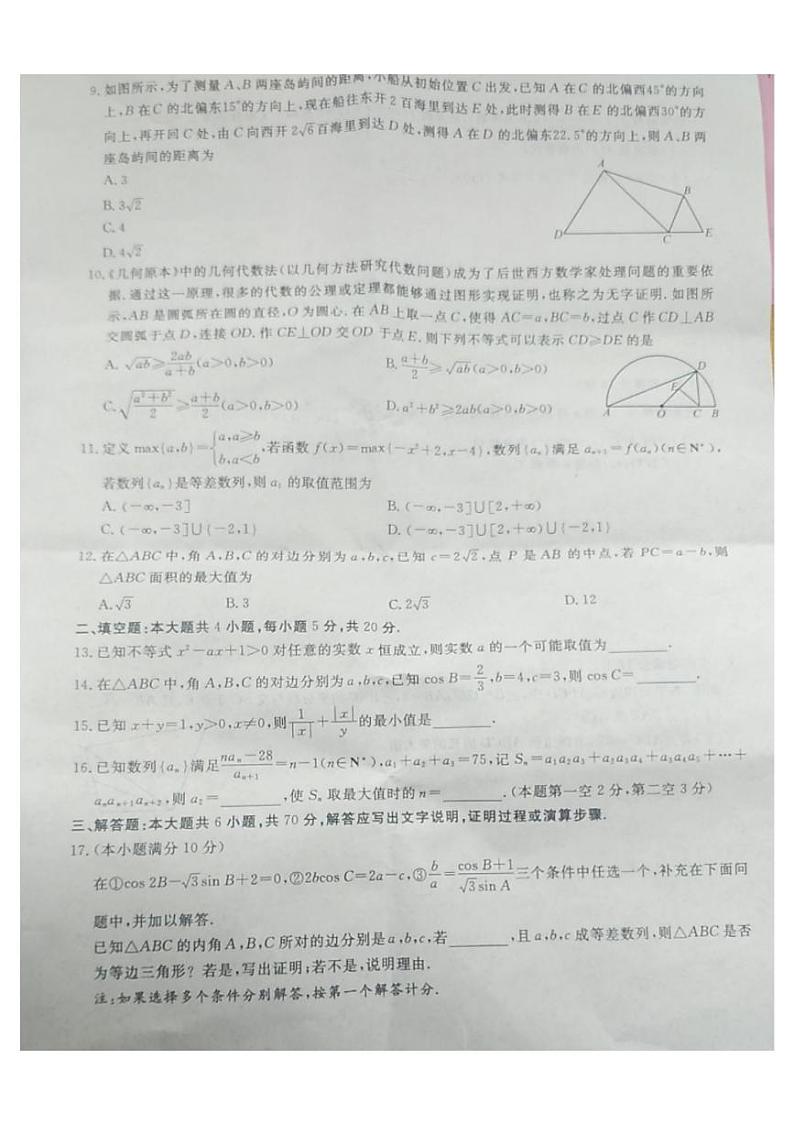 9. 如图所示,为了测量 A、B 两座岛屿间的距离,小船从初始位置 C 出发,已知 A 在 C 的北偏西45°的方向
上,B 在 C 的北偏东15°的方向上,现在船往东开 2 百海里到达 E 处,此时测得 B 在 E 的北偏西30°的方
向上,再开回 C 处,由 C 向西开 2√6 百海里到达 D 处,测得 A 在 D 的北偏东22.5°的方向上,则 A、B 两
座岛屿间的距离为
A. 3
B. 3√2
C. 4
D. 4√2
A
B
D
C
E
10.《几何原本》中的几何代数法(以几何方法研究代数问题)成为了后世西方数学家处理问题的重要依
据.通过这一原理,很多的代数的公理或定理都能够通过图形实现证明,也称之为无字证明.如图所
示,AB 是圆弧所在圆的直径,O 为圆心.在 AB 上取一点 C,使得 AC=a,BC=b,过点 C 作 CD⊥AB
交圆弧于点 D,连接 OD.作 CE⊥OD 交 OD 于点 E.则下列不等式可以表示 CD≥DE 的是
A. √ab≥2ab/(a+b)(a>0,b>0) B. (a+b)/2≥√ab(a>0,b>0)
C. √((a²+b²)/2)≥(a+b)/2(a>0,b>0) D. a²+b²≥2ab(a>0,b>0)
D
E
A O C B
11. 定义 max{a,b}={a,a≥b b,a<b,若函数 f(x)=max{-x²+2,x-4},数列{aₙ}满足 aₙ₊₁=f(aₙ)(n∈N*),
若数列{aₙ}是等差数列,则 a₁ 的取值范围为
A. (-∞,-3] B. (-∞,-3]∪[2,+∞)
C. (-∞,-3]∪{-2,1} D. (-∞,-3]∪[2,+∞)∪{-2,1}
12. 在△ABC 中,角 A,B,C 的对边分别为 a,b,c,已知 c=2√2,点 P 是 AB 的中点,若 PC=a-b,则
△ABC 面积的最大值为
A. √3 B. 3 C. 2√3 D. 12
二、填空题:本大题共 4 小题,每小题 5 分,共 20 分.
13. 已知不等式 x²-ax+1>0 对任意的实数 x 恒成立,则实数 a 的一个可能取值为______.
14. 在△ABC 中,角 A,B,C 的对边分别为 a,b,c,已知 cos B=2/3,b=4,c=3,则 cos C=______.
15. 已知 x+y=1,y>0,x≠0,则1/|x|+|x|/y的最小值是______.
16. 已知数列{aₙ}满足(naₙ-28)/aₙ₊₁=n-1(n∈N*),a₁+a₂+a₃=75,记 Sₙ=a₁a₂a₃+a₂a₃a₄+a₃a₄a₅+…+
aₙaₙ₊₁aₙ₊₂,则 a₂=______,使 Sₙ 取最大值时的 n=______.(本题第一空 2 分,第二空 3 分)
三、解答题:本大题共 6 小题,共 70 分,解答应写出文字说明,证明过程或演算步骤.
17.(本小题满分 10 分)
在①cos 2B-√3sin B+2=0,②2bcos C=2a-c,③b/a=(cos B+1)/(√3sin A)三个条件中任选一个,补充在下面问
题中,并加以解答.
已知△ABC 的内角 A,B,C 所对的边分别是 a,b,c,若______,且 a,b,c 成等差数列,则△ABC 是否
为等边三角形?若是,写出证明;若不是,说明理由.
注:如果选择多个条件分别解答,按第一个解答计分.